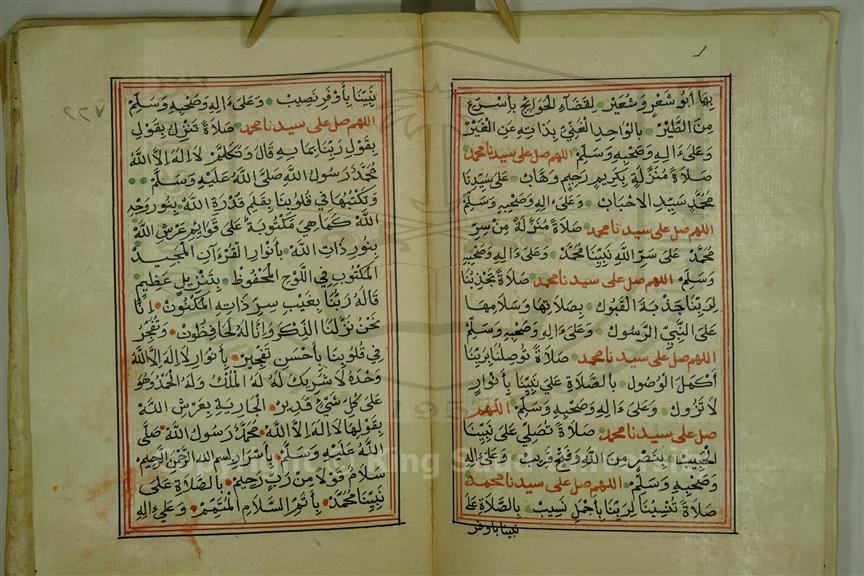 بِهَا أَبُو شَغْرٍ وَشُعَيْرٍ لِقَضَاءِ الْحَوَائِجِ بِأَسْرَعِ
مِنَ الطَّيْرِ بِالْوَاحِدِ الْغَنِيِّ بِذَاتِهِ عَنِ الْغَيْرِ
وَعَلَىٰ ءَالِهِ وَصَحْبِهِ وَسَلِّمْ اللهم صل على سيدنا محمد
صَلَاةً مُنَزَّلَةً بِكَرِيمٍ رَحِيمٍ وَهَّابٍ عَلَى سَيِّدِنَا
مُحَمَّدٍ سَيِّدِ الْاَحْبَابِ وَعَلَىٰ ءَالِهِ وَصَحْبِهِ وَسَلِّمْ
اللهم صل على سيدنا محمد صَلَاةً مُنَزَّلَةً مِنْ سِرِّ
مُحَمَّدٍ عَلَى سِرِّ اللَّهِ نَبِيِّنَا مُحَمَّدٍ وَعَلَىٰ ءَالِهِ وَصَحْبِهِ
وَسَلِّمْ اللهم صل على سيدنا محمد صَلَاةً تَجْذِبُنَا
لِرَبِّنَا جَذْبَةَ الْقَبُولِ بِصَلَاتِهَا وَسَلَامِهَا
عَلَى النَّبِيِّ الرَّسُولِ وَعَلَىٰ ءَالِهِ وَصَحْبِهِ وَسَلِّمْ
اللهم صل على سيدنا محمد صَلَاةً تُوصِلُنَا لِرَبِّنَا
أَكْمَلَ الْوُصُولِ بِالصَّلَاةِ عَلَىٰ نَبِيِّنَا بِأَنْوَارٍ
لَا تَزُولُ وَعَلَىٰ ءَالِهِ وَصَحْبِهِ وَسَلِّمْ اللهم
صل على سيدنا محمد صَلَاةً تُصَلِّي عَلَىٰ نَبِيِّنَا
الْحَبِيبِ بِنَصْرٍ مِنَ اللَّهِ وَفَتْحٍ قَرِيبٍ وَعَلَىٰ ءَالِهِ
وَصَحْبِهِ وَسَلِّمْ اللهم صل على سيدنا محمد
صَلَاةً تَنْسِبُنَا لِرَبِّنَا بِأَجَلِّ نَسِيبٍ بِالصَّلَاةِ عَلَىٰ
نبينا باوفر
نَبِيِّنَا بِأَوْفَرِ نَصِيبٍ وَعَلَىٰ ءَالِهِ وَصَحْبِهِ وَسَلِّمْ
اللهم صل على سيدنا محمد صَلَاةً تَنْزِلُ بِقَوْلٍ
يَقُولُ رَبُّنَا بِمَا بِهِ قَالَ وَتَكَلَّمَ لَا إِلَهَ إِلَّا اللَّهُ
مُحَمَّدٌ رَسُولُ اللَّهِ صَلَّى اللَّهُ عَلَيْهِ وَسَلَّمَ
وَيَكْتُبُهَا فِي قُلُوبِنَا بِقَلَمِ قُدْرَةِ اللَّهِ بِنُورِ وَجْهِ
اللَّهِ كَمَا هِيَ مَكْتُوبَةٌ عَلَىٰ قَوَائِمِ عَرْشِ اللَّهِ
بِنُورِ ذَاتِ اللَّهِ بِأَنْوَارِ الْقُرْءَانِ الْمَجِيدِ
الْمَكْتُوبِ فِي اللَّوْحِ الْمَحْفُوظِ بِتَنْزِيلٍ عَظِيمٍ
قَالَهُ رَبُّنَا بِغَيْبِ سِرِّ ذَاتِهِ الْمَكْنُونِ إِنَّا
نَحْنُ نَزَّلْنَا الذِّكْرَ وَإِنَّا لَهُ لَحَافِظُونَ وَتُفَجِّرُ
فِي قُلُوبِنَا بِأَحْسَنِ تَفْجِيرٍ بِأَنْوَارِ لَا إِلَهَ إِلَّا اللَّهُ
وَحْدَهُ لَا شَرِيكَ لَهُ لَهُ الْمُلْكُ وَلَهُ الْحَمْدُ وَهُوَ
عَلَىٰ كُلِّ شَيْءٍ قَدِيرٌ الْجَارِيَةِ بِعَرْشِ اللَّهِ
بِقَوْلِهَا لَا إِلَهَ إِلَّا اللَّهُ مُحَمَّدٌ رَسُولُ اللَّهِ صَلَّى
اللَّهُ عَلَيْهِ وَسَلَّمَ بِأَسْرَارِ بِسْمِ اللَّهِ الرَّحْمَنِ الرَّحِيمِ
سَلَامٌ قَوْلًا مِنْ رَبٍّ رَحِيمٍ بِالصَّلَاةِ عَلَىٰ
نَبِيِّنَا مُحَمَّدٍ بِأَتَمِّ السَّلَامِ الْمُتَمَّمِ وَعَلَىٰ ءَالِهِ